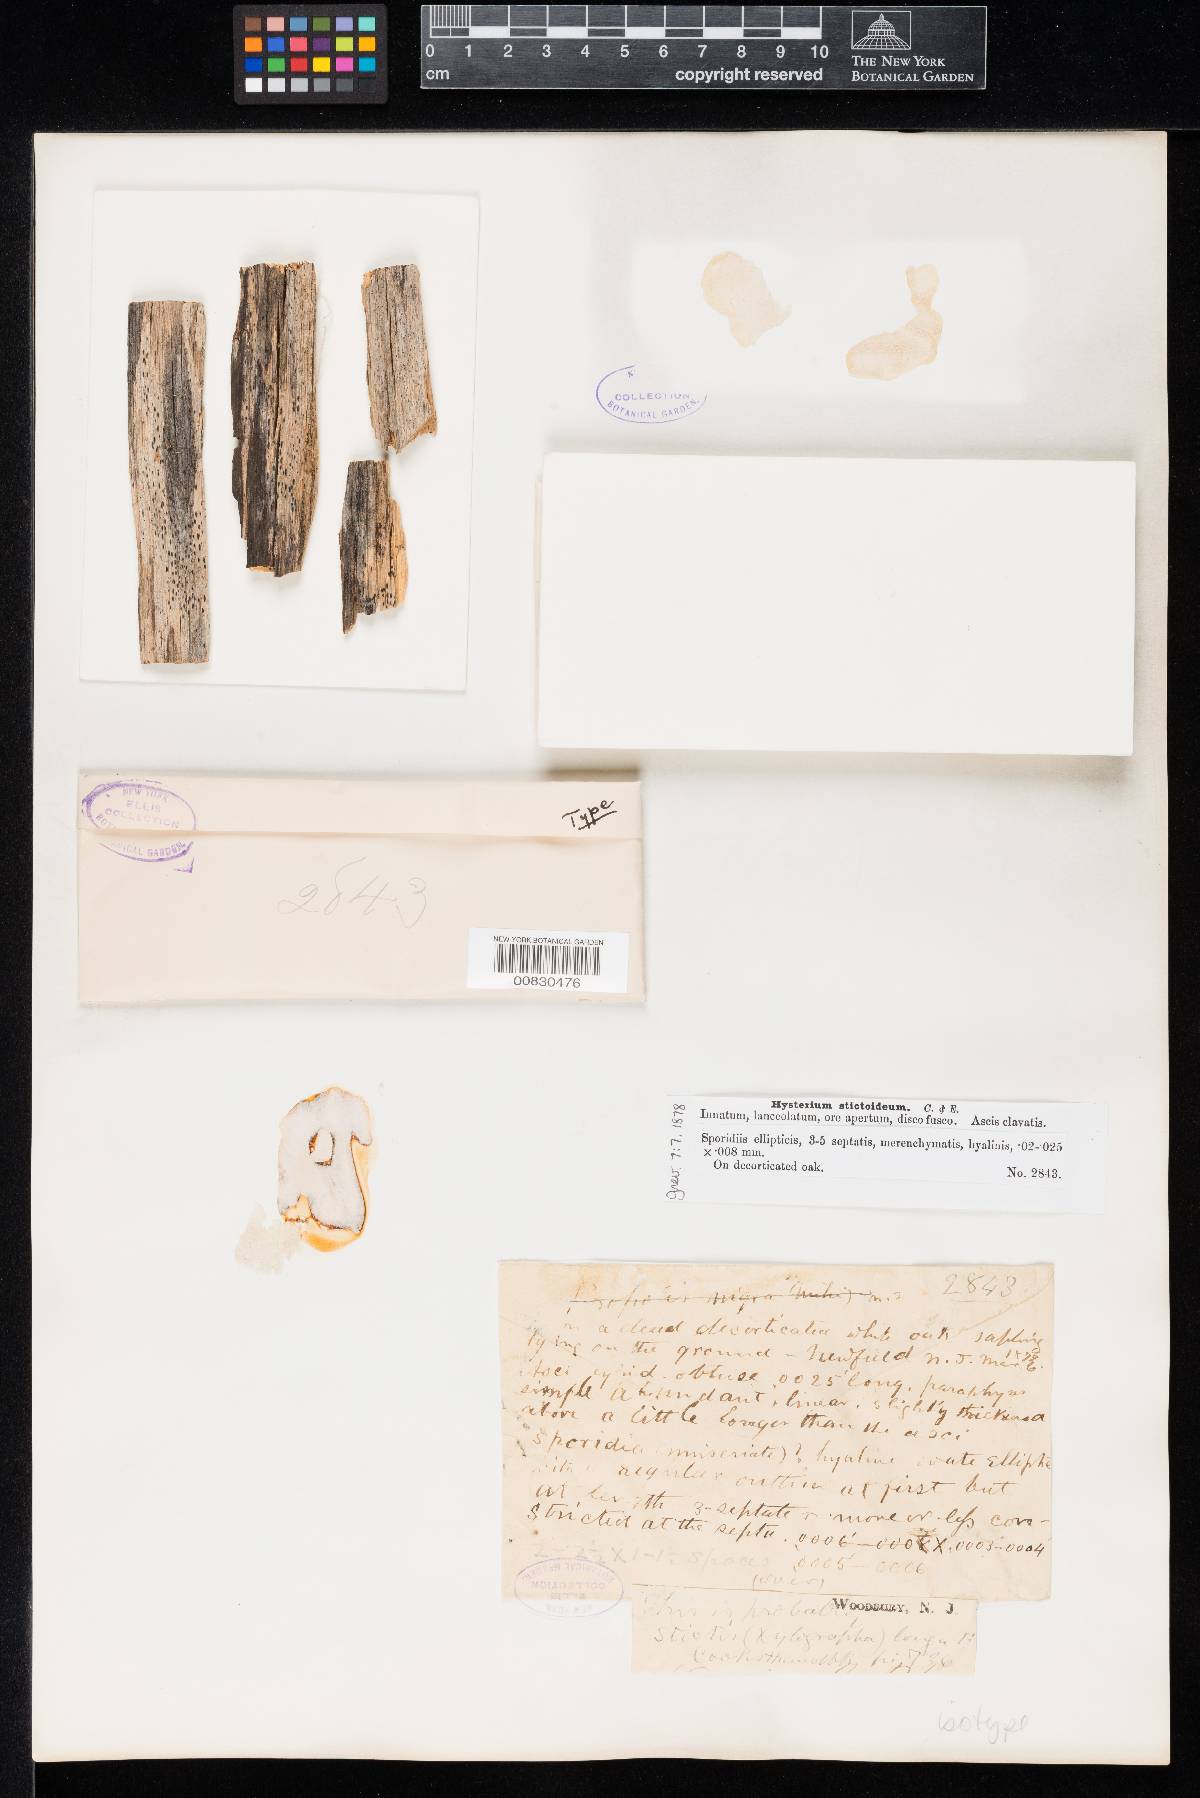 0 1 2 3 4 5 6 7 8 9 10
cm
copyright reserved
THE NEW YORK
BOTANICAL GARDEN
COLLECTION
BOTANICAL GARDEN.
NEW YORK
ELLIS
COLLECTION
BOTANICAL GARDEN.
Type
2843
NEW YORK BOTANICAL GARDEN
00830476
Grev. 7:7. 1878
Hysterium stictoideum. C. & E.
Innatum, lanceolatum, ore apertum, disco fusco. Ascis clavatis.
Sporidiis ellipticis, 3-5 septatis, merenchymatis, hyalinis, ·02-·025
× ·008 mm.
On decorticated oak.
No. 2843.
2843
nigra
a dead decorticated white oak sapling
lying on the ground - Newfield N. J. Mar
obtuse .0025' long, paraphyses
simple abundant, linear, slightly thickened
above a little longer than the asci
Sporidia (uniseriate)? hyaline ovate elliptic
regular outline at first but
at length 3-septate & more or less con-
stricted at the septa .0006'-000 X .0003-0004'
spores .0005-0006
(over)
COLLECTION
WOODBURY, N. J.
This is probably
Stictis (Xylographa)
isotype